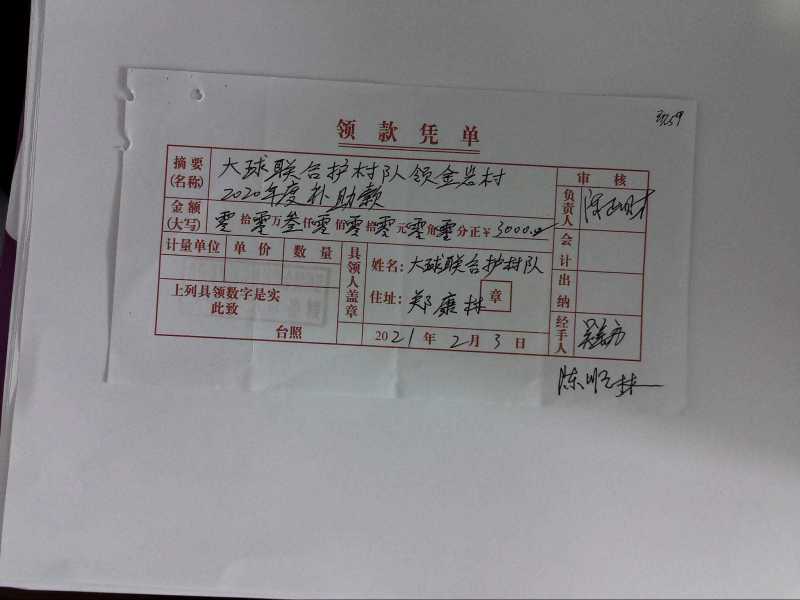 领款凭单
摘要(名称) 大球联合护村队领金岩村
2020年度补助款
审核
金额(大写) 零拾零万叁仟零佰零拾零元零角零分正¥3000.00
负责人
会计
计量单位 单价 数量
具领人盖章
姓名:大球联合护村队
住址:郑康林 章
上列具领数字是实
此致
台照
2021年2月3日
出纳
经手人
陈顺林